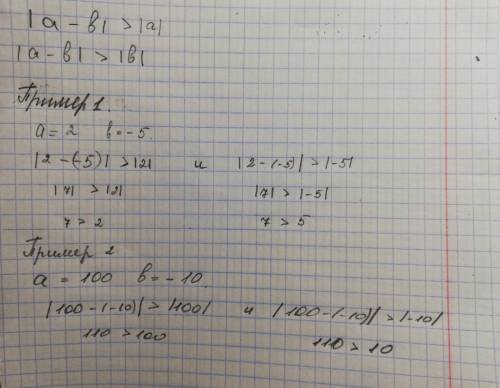 |a - b| > |a|
|a - b| > |b|
Пример 1.
a = 2 b = -5.
|2 - (-5)| > |2| и |2 - (-5)| > |-5|
|7| > |2| |7| > |-5|
7 > 2 7 > 5
Пример 2
a = 100 b = -10.
|100 - (-10)| > |100| и |100 - (-10)| > |-10|
110 > 100 110 > 10